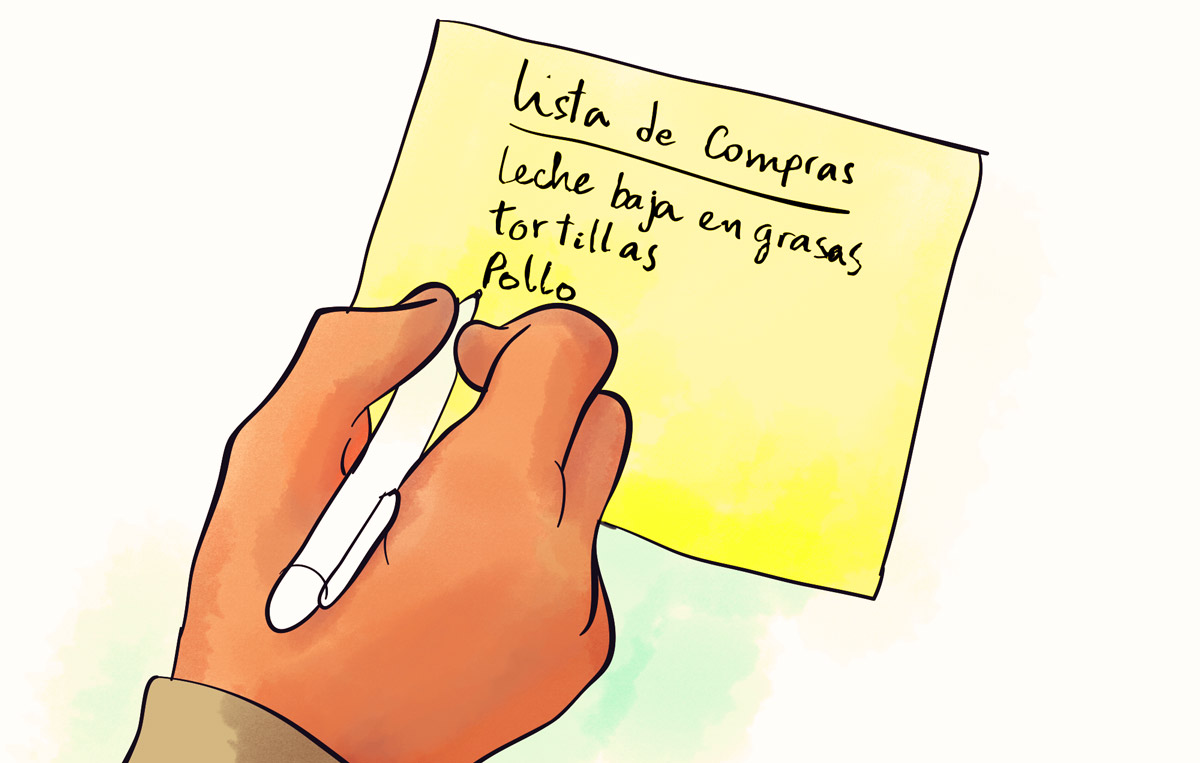 Lista de Compras
leche baja en grasas
tortillas
Pollo